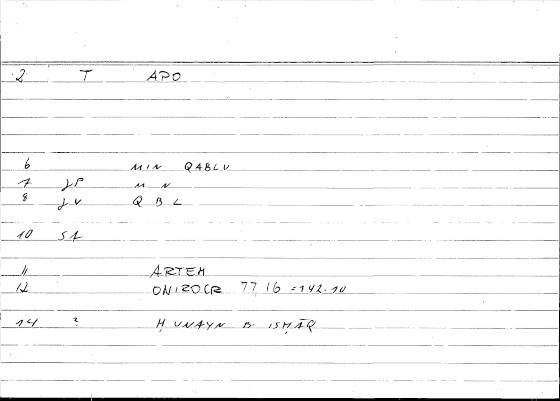 2 T APO
6 MIN QABLU
7 JP M N
8 JV Q B L
10 SA
11 ARTEM
12 ONIROCR 77,16 = 142.10
14 ? ḤUNAYN B. ISḤĀQ